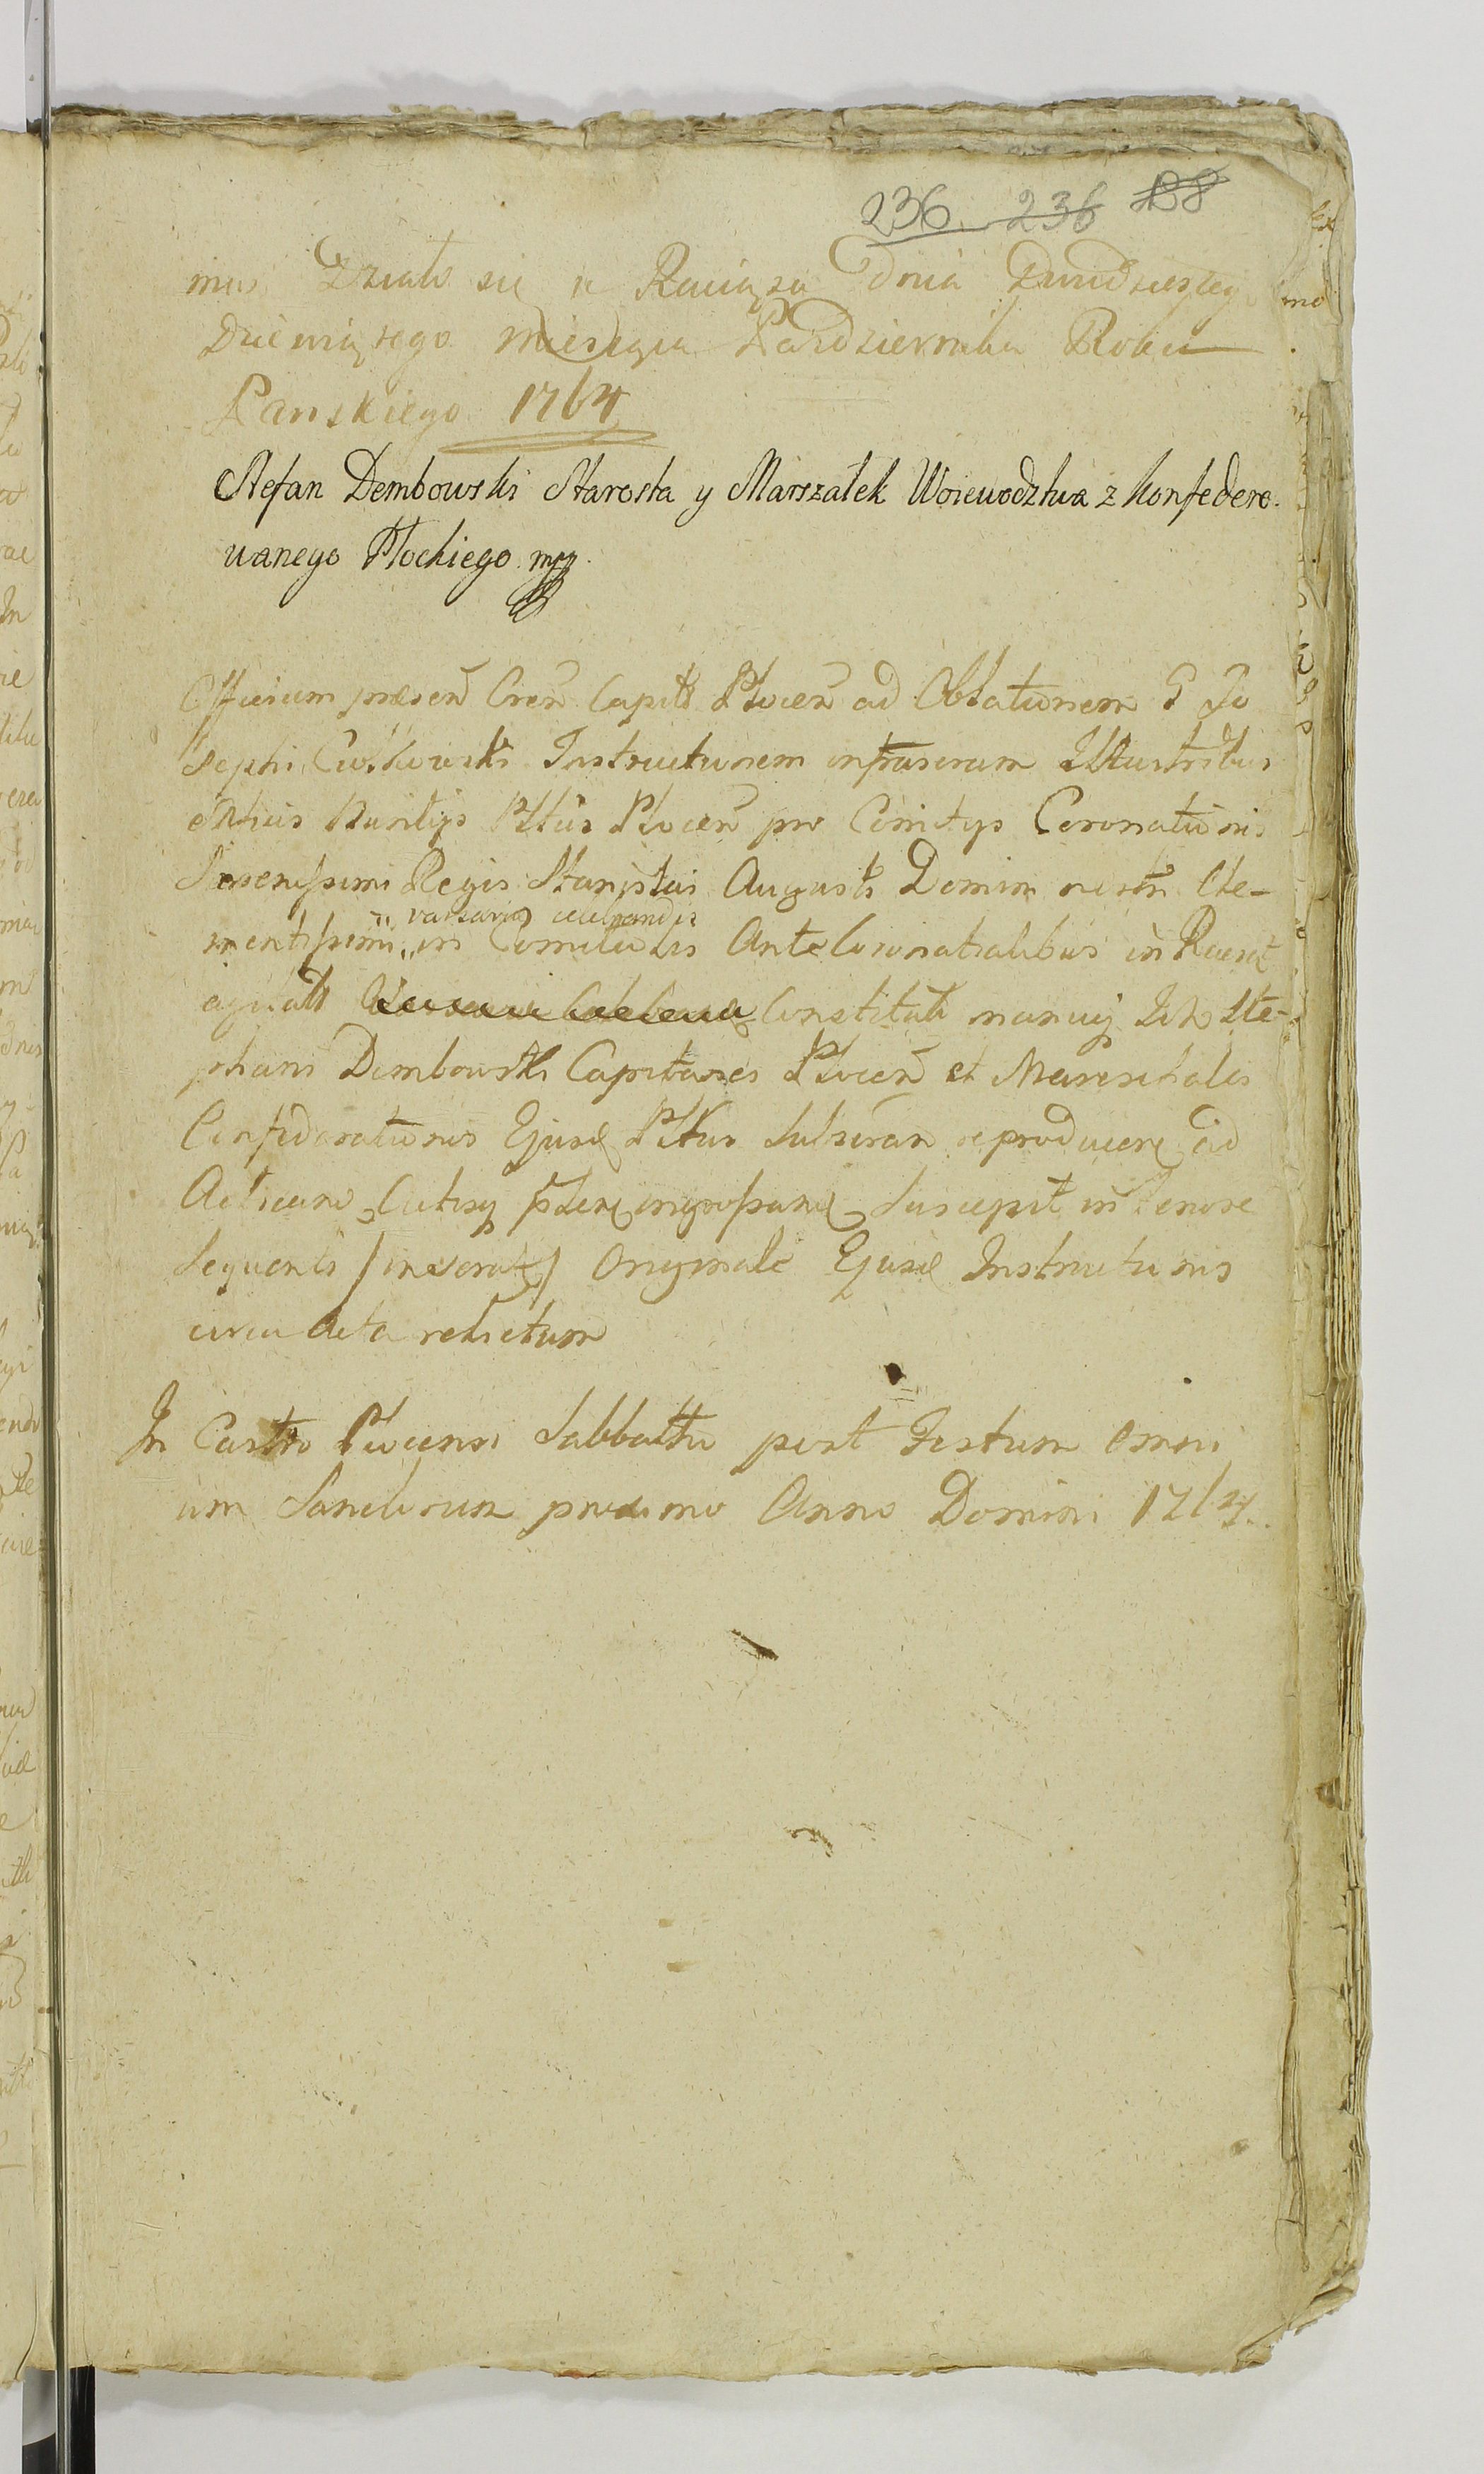 236. 236 188
mus Działo się w Raciążu Dnia Dwudziestego
Dziewiątego Miesiąca Pazdziernika Roku
Panskiego 1764
Stefan Dembowski Starosta y Marszałek Woiewodztwa z konfedero.
wanego Płockiego mpp.
Officium præsen Cren Capit Plocen ad Oblationem G Jo
sephi Instructionem infrascram Illustribus
Nuntijs Pltus Plocen pro Comitys Coronationis
Serenissimi Regis Stanislai Augusti Domini nostri Cle-
varsaviæ celebrandis
mentissimi in Comitiolis AnteCoronationalibus in Raciąż
agitatis Constitutis manuq Ste-
phani Dembowski Capitanei Plocen et Mareschalci
Confæderationis Ejusd Pltus Subscram reproducere ad
Acticand Actisq ingrossand Suscepit in tenore
Sequenti / inserat / Originale Ejusd Instructionis
circa Acta relictum
In Castro Plocensi Sabbatho post Festum Omni
um Sanctorum proximo Anno Domini 1764.